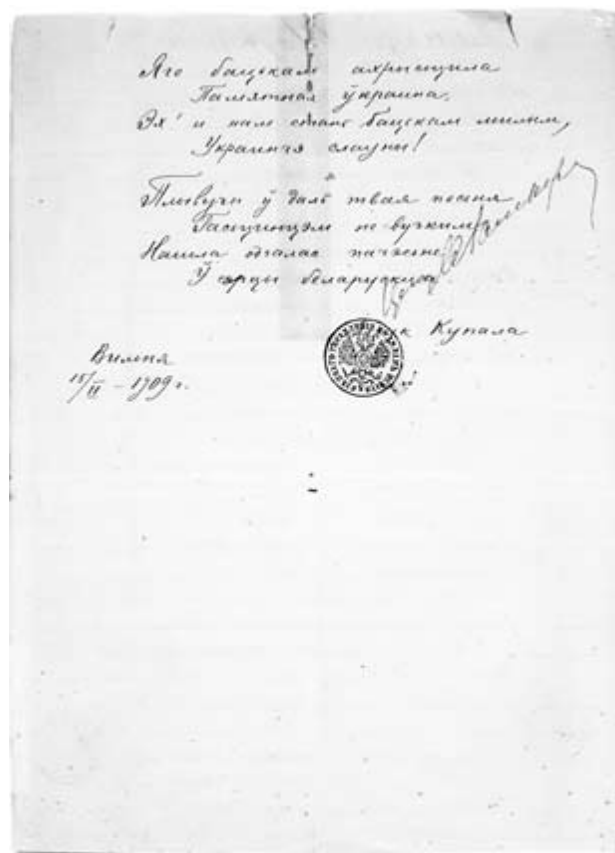 Яго бацькам ахрысціла
Памятная ўкраина.
Эх! и нам стань бацькам милым,
Украинча слаўны!
Плывучи ў даль твая песня
Гасцинцэм не вузким
Нашла одгалас
Ў сэрцы беларускім.
Купала
Вильня
15/II – 1909 г.